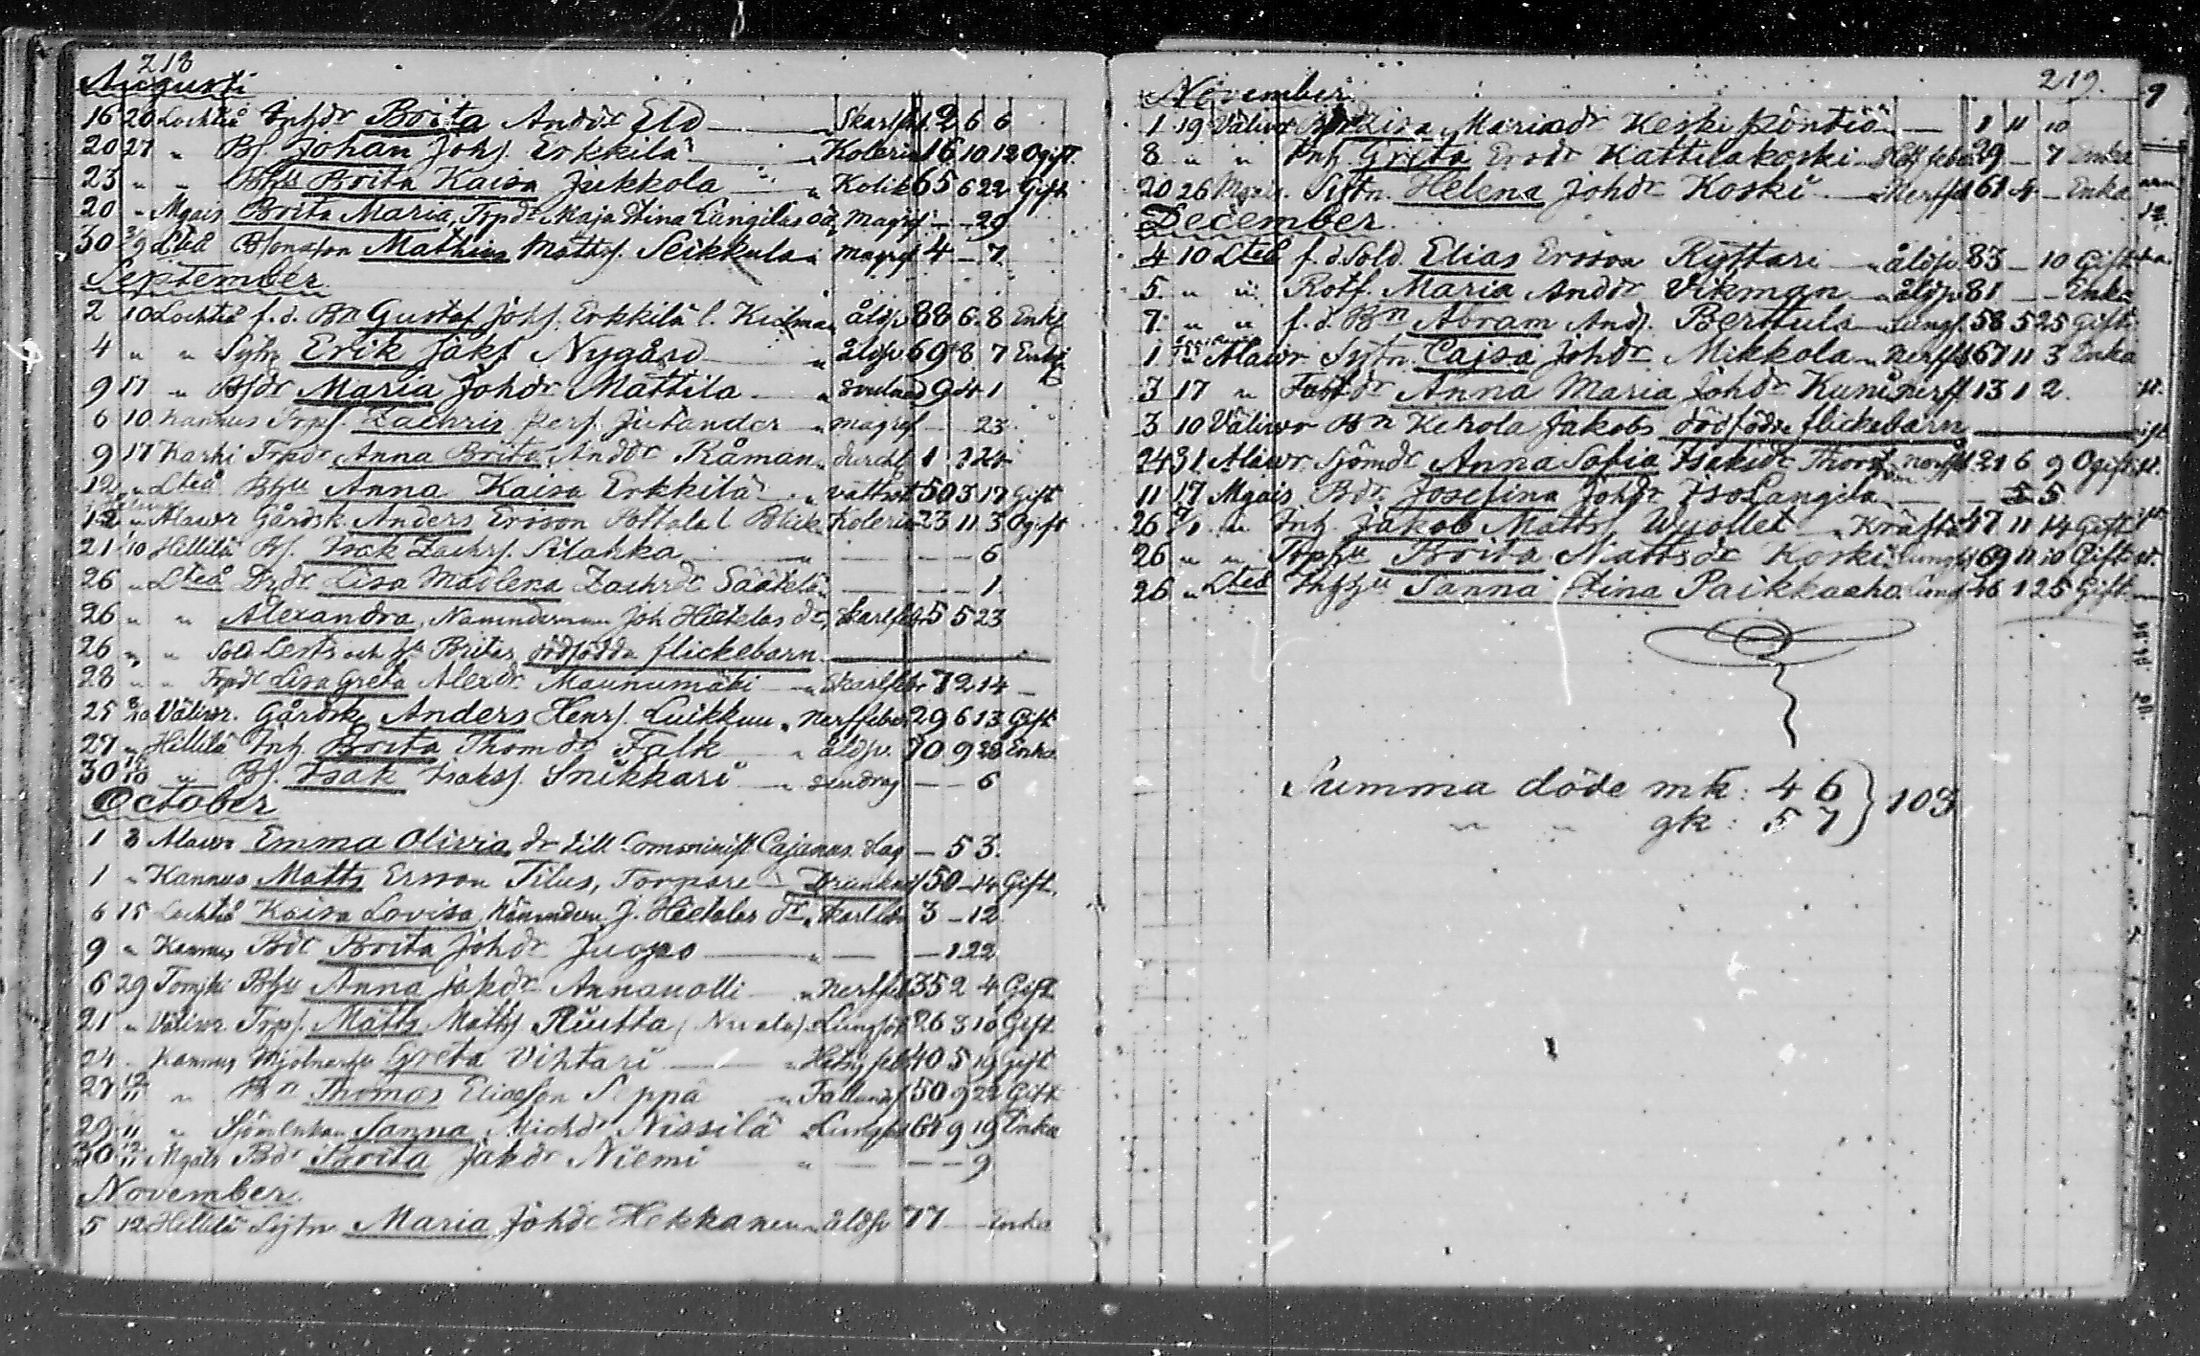 218
Augusti
16 20 Lochteå Inhdr Brita Anddr Eld Skarlf 2 6 6
20 27 " Bs. Johan Johs. Erkkilä Kolerin 16 10 12 Ogift
23 " " Bhu Brita Kaisa Jukkola " Kolik 65 6 22 Gift
20 " Mgais Brita Maria, Trpdr Maja Stina Langilas oä magref — — 29
30 3/9 Lteå Bonason Mathias Matths. Seikkula " magref 4 — 7
September
2 10 Lochteå f. d. Bn Gustaf Johs. Erkkilä l. åldr 88 6 8 Enkl
4 " " Sytn Erik Jaks. Nygård " åldr 69 8 7 Enkl
9 17 " Bdr Maria Johdr Mattila " 9 4 1
6 10 Kannus Trps. Zachris Pers. Jutander " magref — — 23
9 17 Karhi Trpdr Anna Brita Anddr Råman " durchl 1 1 24
12 " Lteå Bhu Anna Kaisa Erkkilä " vattust 50 3 17 Gift
12 " Alawr Gårdsk. Anders Ersson Pottala l Kolerin 23 11 3 Ogift
21 10 Hillilä Bs. Isak Zachrs. Silahka " — — 6
26 " Lteå Drdr Lisa Madlena Zachrdr Säätelä " — — 1
26 " " Alexandra, Nämndeman Joh Hietalas dr, Skarlfebr 5 5 23
26 " " Sold. Lents och hu Britas dödfödda flickebarn
28 " " Trpdr Lisa Greta Alexdr Maunumäki " Skarlfebr 7 2 14
25 8/10 Väliwr. Gårdsk. Anders Henrs. Luikkuu " Nerffeber 29 6 13 Gift
27 " Hillilä Inh. Brita Thomdr Falk " åldr. 70 9 28 Enka
30 " Bs. Isak Isakss. Snikkari " slindrag — — 6
October
1 8 Alawr Emma Olivia dr till Comminist Cajanus slag — 5 3
1 " Kannus Matts Ersson Tilus, Torpare Drunknad 50 — 14 Gift.
6 15 Lochteå Kaisa Lovisa, Nämndem J. Hietalas dr " Skarlfebr 3 — 12
9 " Kannus Bdr Brita Johdr Juopo " — — 1 22
6 29 Tomjki Bhu Anna Jakdr Annanolli " Nerffeb 35 2 4 Gift
21 " Väliwr Trps. Matts Matts. Riutta (Nivala) Lungsot 26 3 10 Gift
24 " Kannus Mjölnarhu Greta Vihtari " Hetsig feb 40 5 19 Gift
27 12/11 " Bn Thomas Eliasson Seppä " Fallandes 50 9 22 Gift
29 11 " Sjömenkan Sanna Michdr Nissilä Lungsot 64 9 19 Enka
30 12/11 Mgais Bdr Brita Jakdr Niemi " — — — 9
November
5 12 Hillilä Sytn Maria Johdr Hekkanen åldr 77 — — Enka
219.
November
1 19 Väliwr Lisa Mariadr Keski Pöntiö — 1 11 10
8 " " Inh. Greta Ersdr Kattilakoski feber 29 — 7 Enka
20 26 Mgais. Sytn. Helena Johdr Koski Nerffb 61 4 — Enka
December
4 10 Lteå f. d. Sold. Elias Ersson Ryttari " åldr 83 — 10 Gift
5 " " Rotf. Maria Anddr Vikman åldr 81 — — Enka
7 " " f. d. Bn Abram Ands. Berttula Lungs. 58 5 25 Gift
1 " Alawr Sytn. Cajsa Johdr Mikkola " Nerff 67 11 3 Enka
3 17 " Anna Maria Johdr Kuni nerff 13 1 2
3 10 Väliwr Bn Kehola Jakobs dödfödda flickebarn
24 31 Alawr Sjömdr Anna Sofia Isaksdr nerff 21 6 9 Ogift
11 17 Mgais Bdr Josefina Johdr Iso Langila — — 5 5
26 7/1 " Inh. Jakob Matts. Wuollet " Kräfta 47 11 14 Gift
26 " " Trphu Brita Mattsdr Koski Lungs 69 11 10 Gift
26 " Lteå Sanna Stina Paikkaaho Lungs 46 1 25 Gift
Summa döde mk: 46 } 103
" " gk: 57